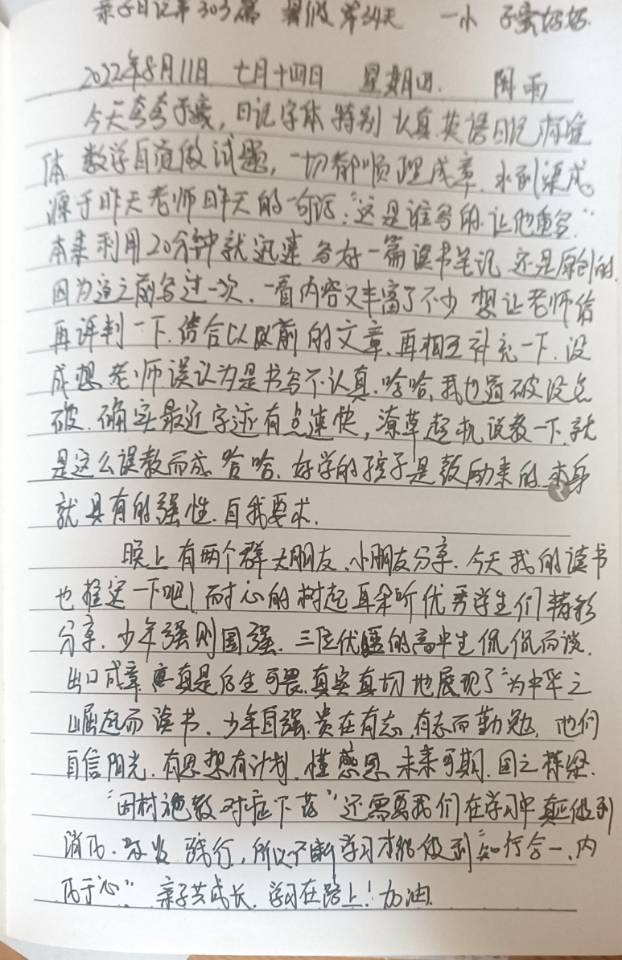 亲子日记第303篇 暑假第34天 一小 子雯妈妈
2022年8月11日 七月十四日 星期四. 阴雨
今天夸夸子雯,日记字体特别认真.英语日记标准
体 数学自觉做试题,一切都顺理成章.水到渠成
源于昨天老师昨天的一句话:“这是谁写的.让他重写.”
本来利用20分钟就迅速写好一篇读书笔记 还是原创的.
因为这之前写过一次.一看内容又丰富了不少 想让老师给
再评判一下.结合以以前的文章.再相互补充一下.没
成想老师误认为是书写不认真.哈哈,我也看破没点
破.确实最近字迹有点速快,潦草趁机说教一下.就
是这么误教而成 哈哈.好学的孩子是鼓励来的.本身
就具有的强性.自我要求.
晚上有两个群大朋友、小朋友分享.今天我的读书
也推迟一下吧!耐心的树起耳朵听优秀学生们精彩
分享.少年强则国强.三位优秀的高中生侃侃而谈.
出口成章 真是后生可畏.真实真切地展现了“为中华之
崛起而读书.少年自强.贵在有志.有志而勤勉.他们
自信阳光.有思想有计划.懂感恩 未来可期.国之栋梁.
“因材施教 对症下药”还需要我们在学习中真正做到
消化. 践行,所以不断学习才能做到“知行合一、内
化于心”亲子共成长.学习在路上!加油.